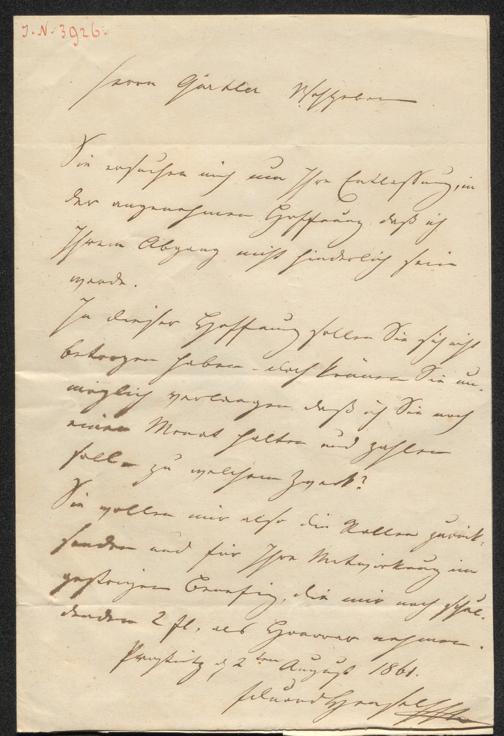 I.N. 3926.
Herrn Gärtler Wohlgeboren
Sie ersuchen mich um Ihre Entlassung, in
der angenehmen Hoffnung daß ich
Ihrem Abgang nicht hinderlich sein
werde.
In dieser Hoffnung sollen Sie sich nicht
betrogen haben – doch können Sie un-
möglich verlangen daß ich Sie noch
einen Monat halten und zahlen
soll – zu welchem Zweck?
Sie wollen mir also die Rollen zurück-
senden und für Ihre Mitwirkung im
gestrigen Benefiz, die mir noch schul-
denden 2 fl. als Honorar nehmen.
Prossnitz d. 2ten August 1861.
Eduard